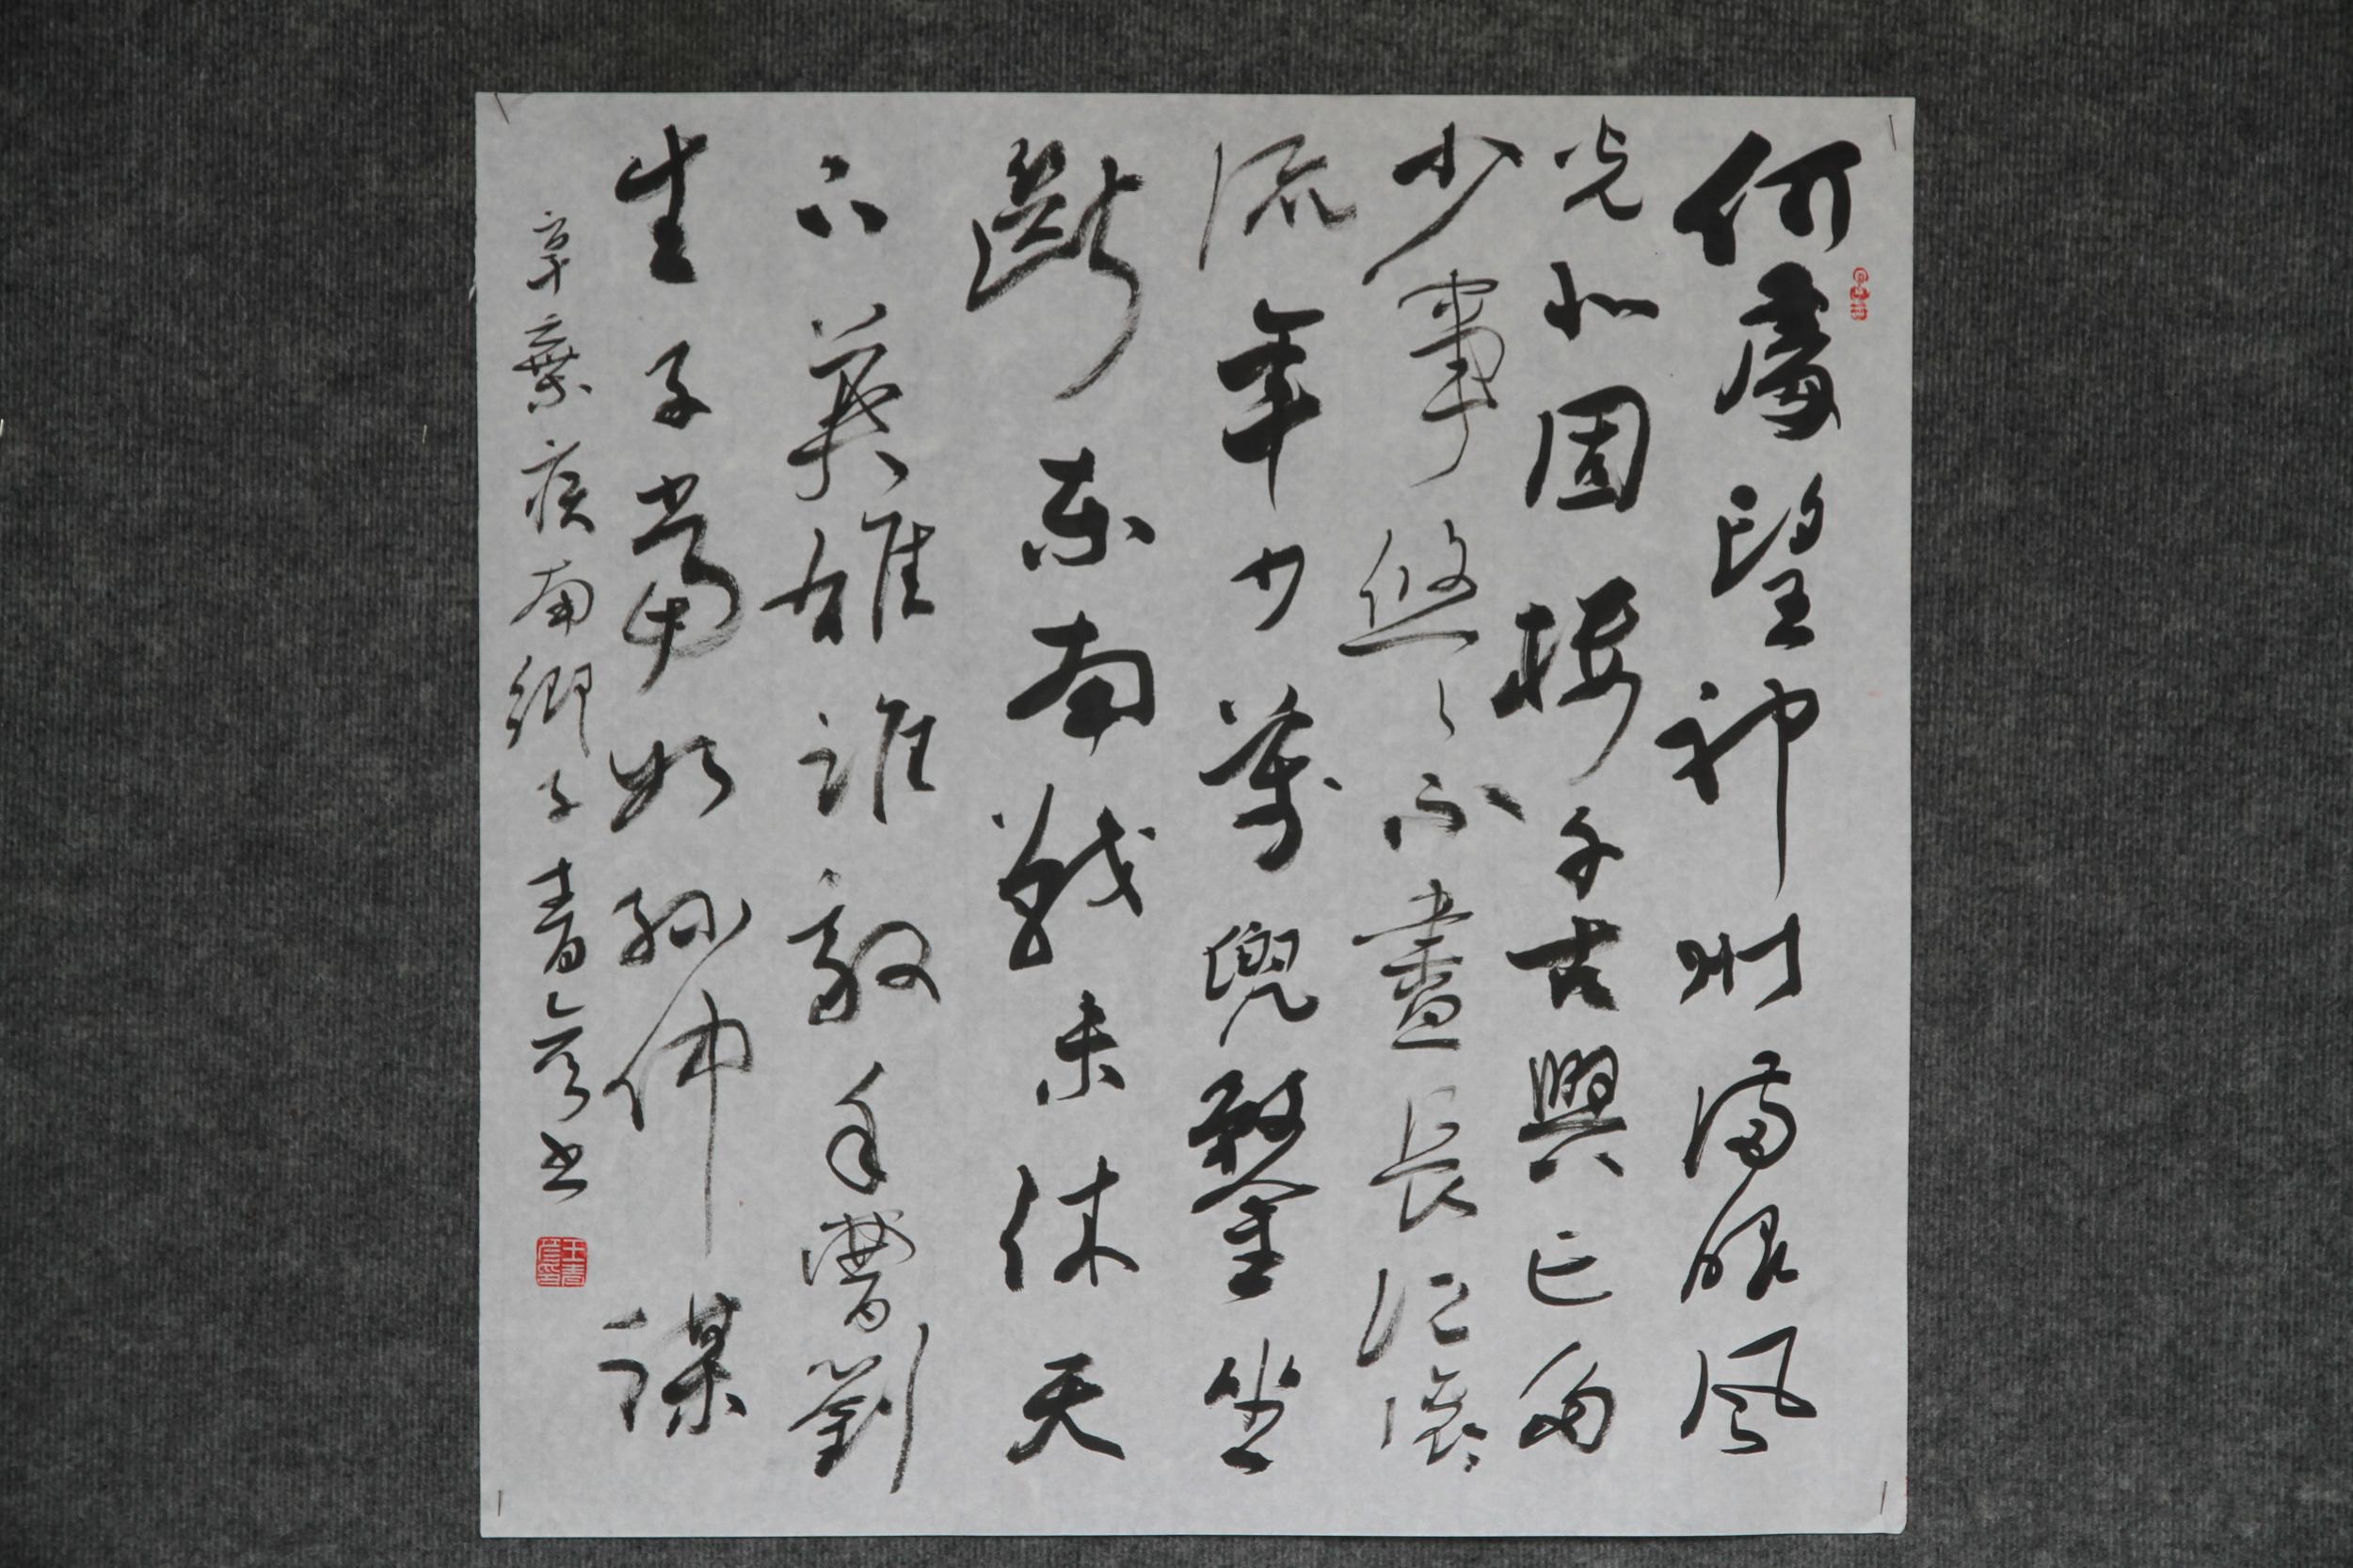 何處望神州滿眼風
光北固樓千古興亡多
少事悠々不盡長江滾々
流年少萬兜鍪坐
斷東南戰未休天
下英雄誰敵手曹劉
生子當如孫仲謀
辛棄疾南鄉子青彥书
王青彥印